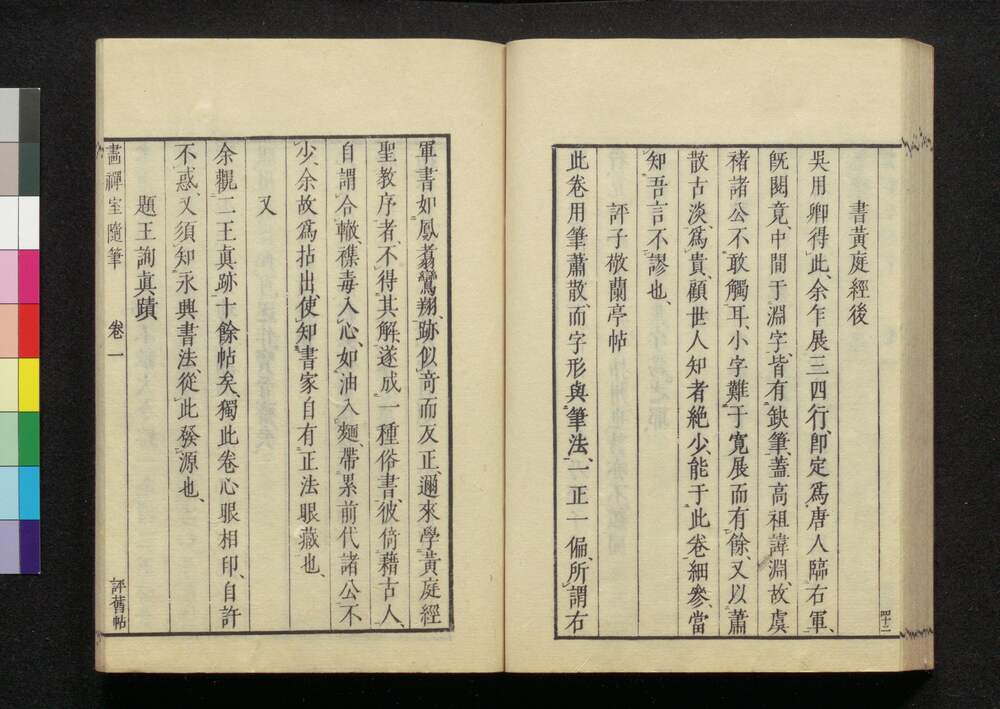 書黃庭經後
吳用卿得此、余乍展三四行、卽定爲唐人臨右軍、
旣閱竟、中間于淵字、皆有缺筆、蓋高祖諱淵、故虞
褚諸公不敢觸耳、小字難于寬展而有餘、又以蕭
散古淡、爲貴、顧世人知者絶少、能于此卷細參、當
知吾言不謬也、
評子敬蘭亭帖
此卷用筆蕭散、而字形與筆法、一正一偏、所謂右
四十二
軍書如鳳翥鸞翔、跡似奇而反正、邇來學黃庭經
聖教序者、不得其解、遂成一種俗書、彼倚藉古人、
自謂合轍、襍毒入心、如油入麵、帶累前代諸公不
少、余故爲拈出使知書家自有正法眼藏也、
又
余觀二王真跡十餘帖矣、獨此卷心眼相印、自許
不惑、又須知永興書法、從此發源也、
題王詢真蹟
畵禪室隨筆 卷一 評舊帖